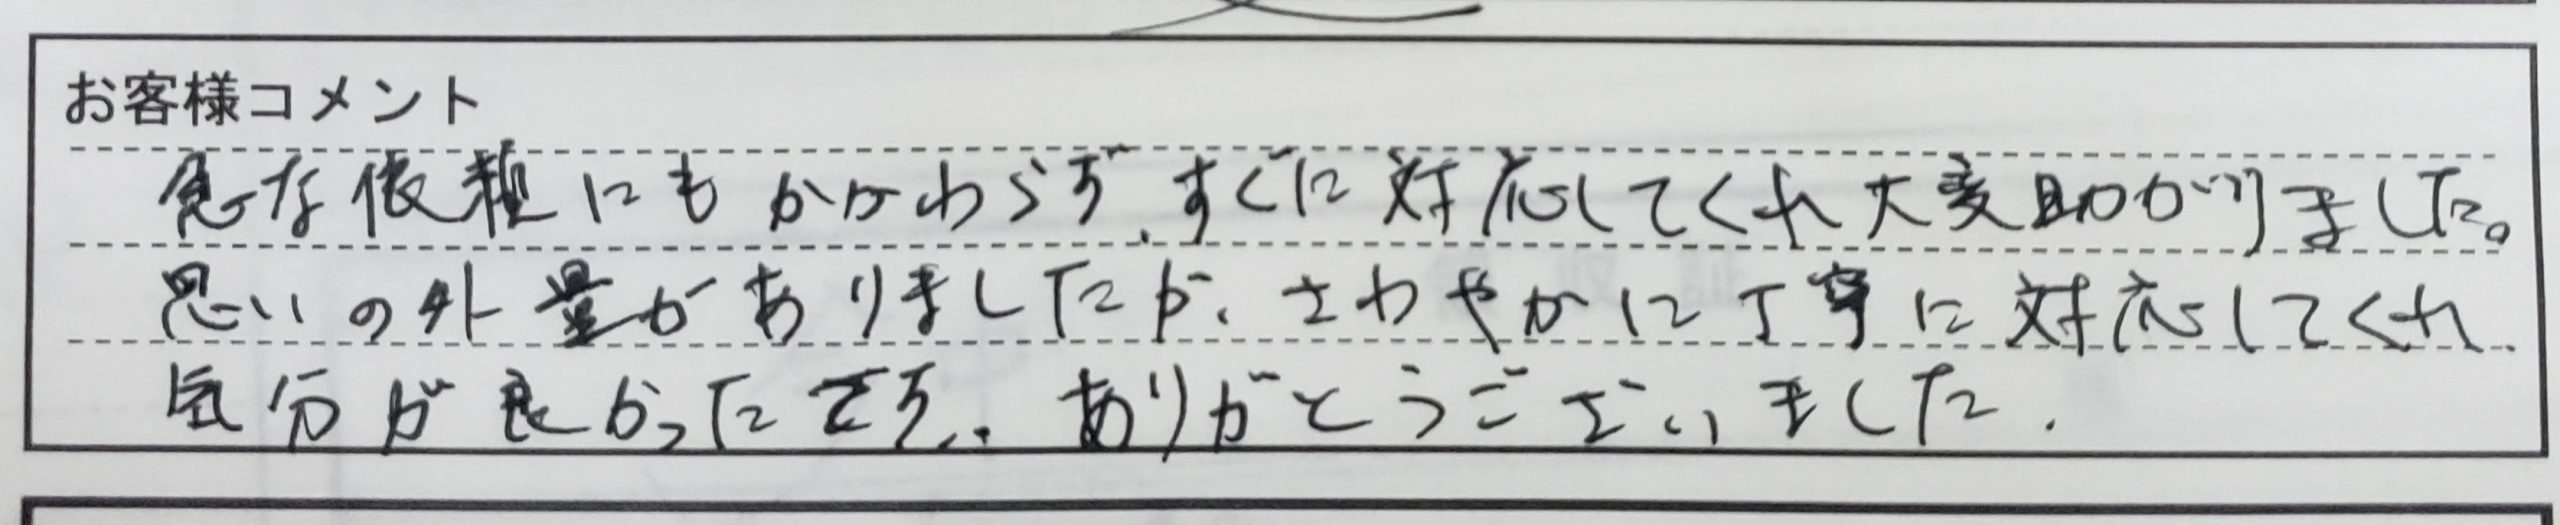 お客様コメント
急な依頼にもかかわらず、すぐに対応してくれ大変助かりました。
思いの外量がありましたが、さわやかに丁寧に対応してくれ、
気分が良かったです。ありがとうございました。